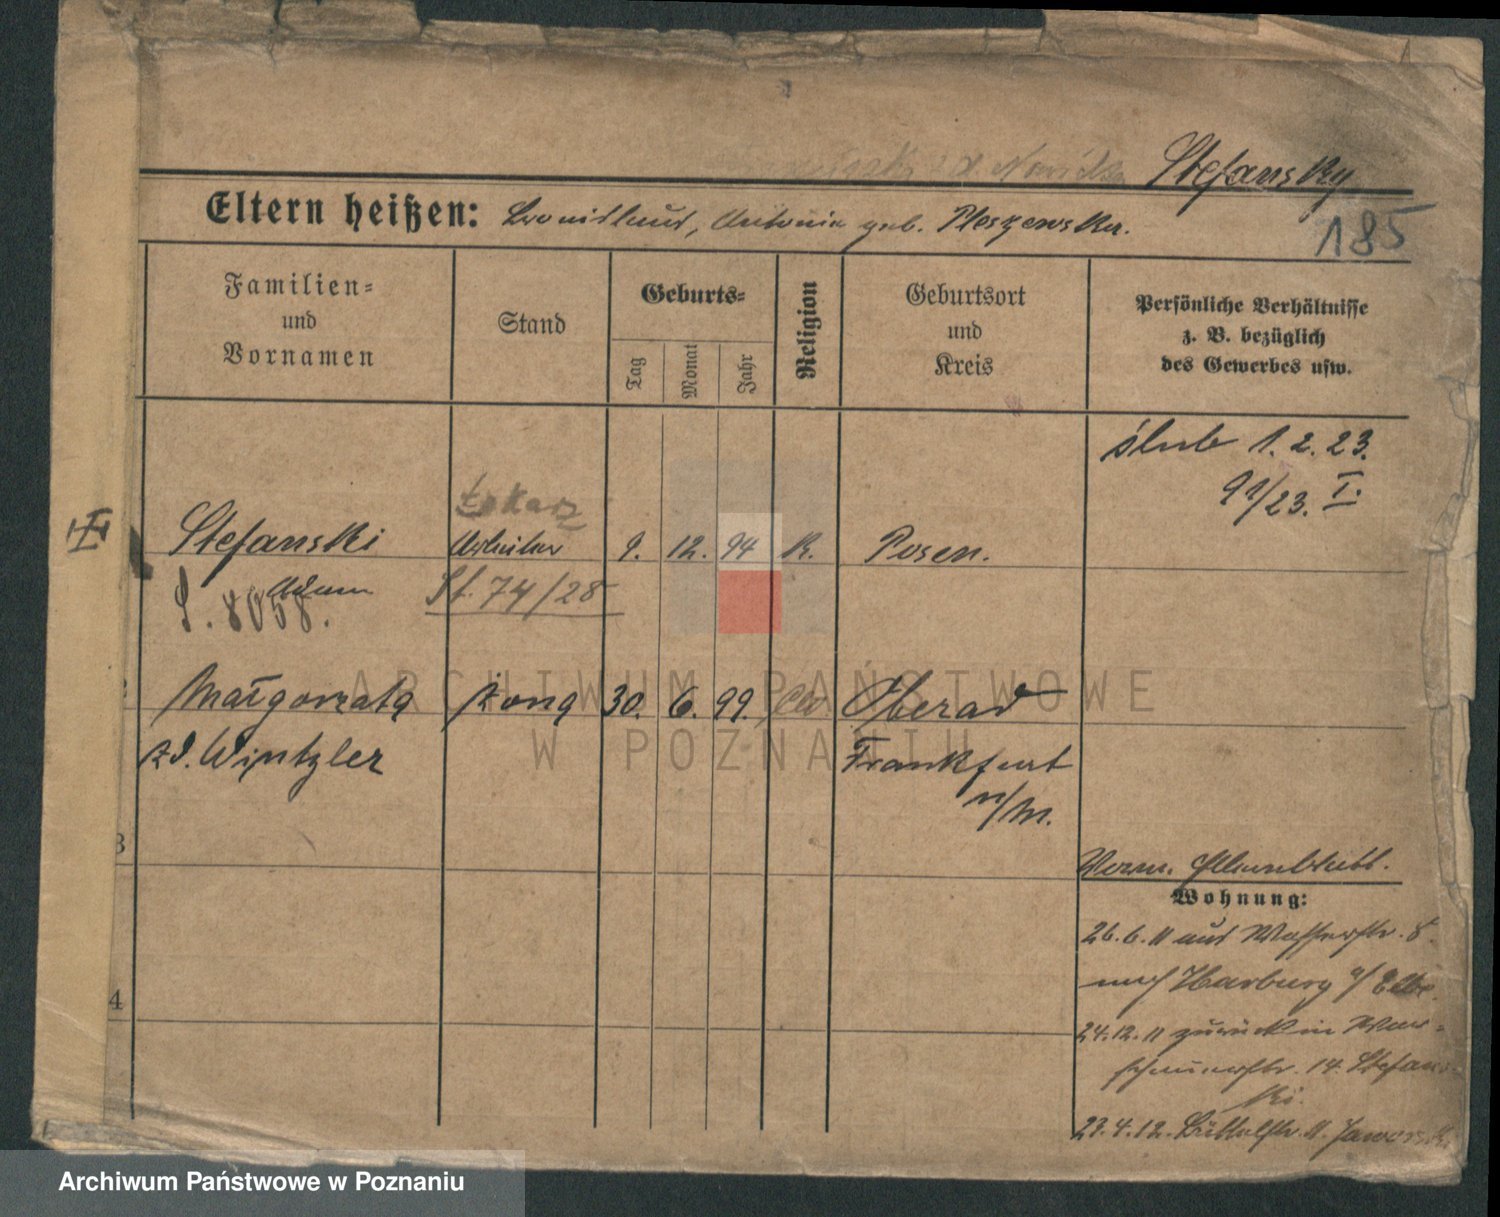 Stefansky
Eltern heißen: Bronislaus, Antonie geb. Pleszewska.
185
Familien-
und
Vornamen
Stand
Geburts-
Tag
Monat
Jahr
Religion
Geburtsort
und
Kreis
Persönliche Verhältnisse
z. B. bezüglich
des Gewerbes usw.
ślub 1. 2. 23.
91/23. I.
Stefanski Arbeiter 9. 12. 94 K. Posen.
Adam St. 74/28
S. 8058.
2
Małgorzata żona 30. 6. 99. Oberad
zd. Wintzler Frankfurt
n/M.
3
Wohnung:
26.6.11 aus Wasserstr. 8
nach Harburg a/Elbe
24.12.11 zurück in
14. Stefans-
ki.
4
23.4.12.
ARCHIWUM PAŃSTWOWE
W POZNANIU
Archiwum Państwowe w Poznaniu